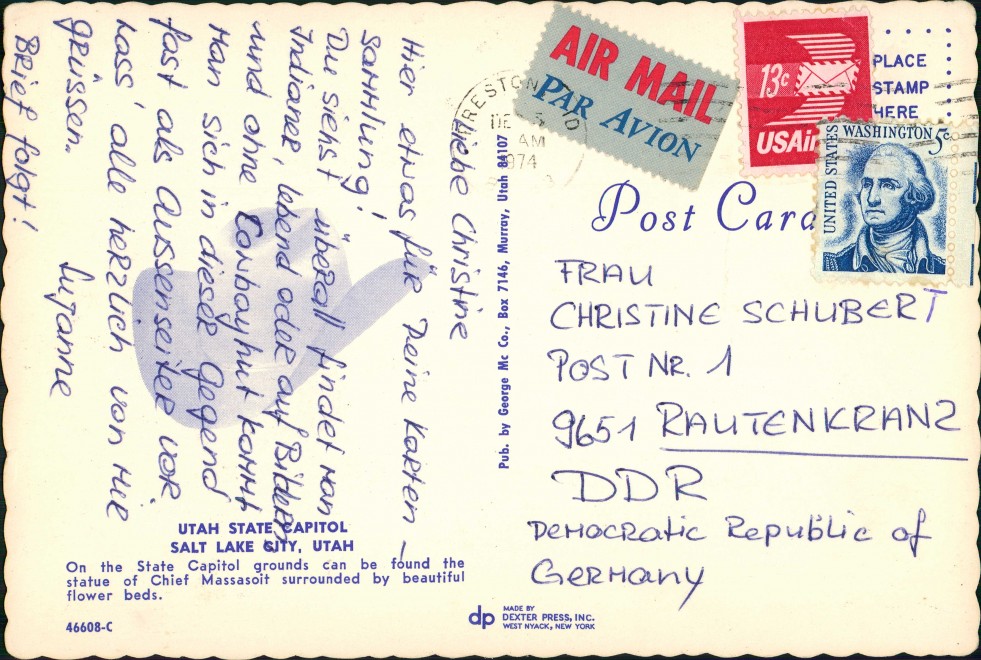 Liebe Christine
Hier etwas für Deine Karten-
sammlung!
Du siehst überall findet man
Indianer lebend oder auf Bildern
und ohne Conboyhut kommt
Man sich in dieser Gegend
fast als Aussenseiter vor.
Lass' alle herzlich von mir
grüssen.
Brief folgt!
UTAH STATE CAPITOL
SALT LAKE CITY, UTAH
On the State Capitol grounds can be found the
statue of Chief Massasoit surrounded by beautiful
flower beds.
46608-C
Pub. by George Mc Co., Box 7146, Murray, Utah 84107
dp
MADE BY
DEXTER PRESS, INC.
WEST NYACK, NEW YORK
AM
AIR MAIL
PAR AVION
13c
USAir
PLACE
STAMP
HERE
UNITED STATES
WASHINGTON 5c
Post Card
FRAU
CHRISTINE SCHUBERT
POST NR. 1
9651 RAUTENKRANZ
DDR
Democratic Republic of
Germany